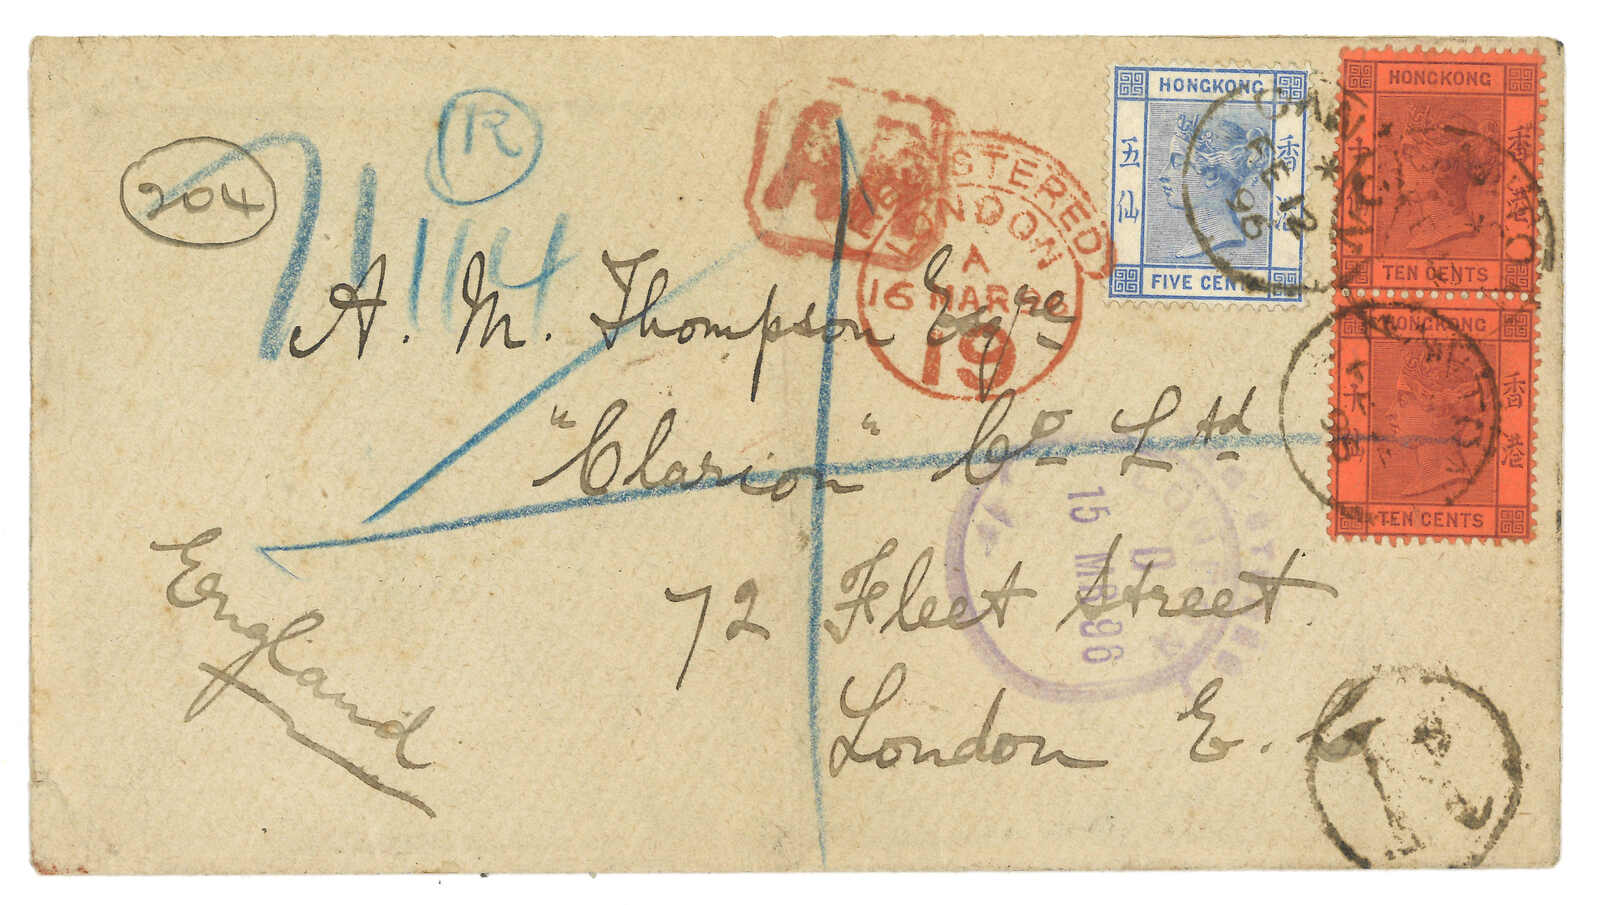 204
R
1114
A. M. Thompson Esqre
"Clarion" Co Ltd
72 Fleet Street
London E. C
England
REGISTERED
LONDON
A
16 MAR 96
19
15 MR 96
D
HONGKONG
五仙
香港
FIVE CENTS
HONGKONG
香港
TEN CENTS
HONGKONG
香港
TEN CENTS
FE 12
96